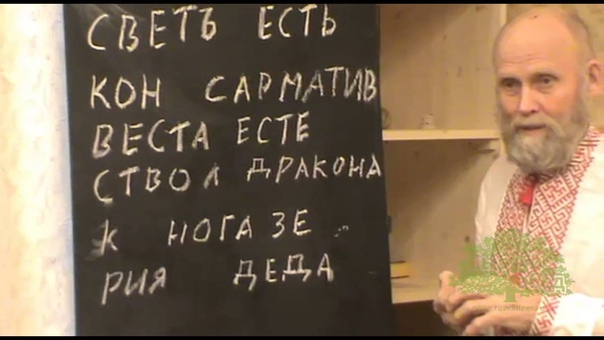 СВЕТЪ ЕСТЬ
КОН САРМАТИВ
ВЕСТА ЕСТЕ
СТВОЛ ДРАКОНА
К НОГА ЗЕ
РИЯ ДЕДА